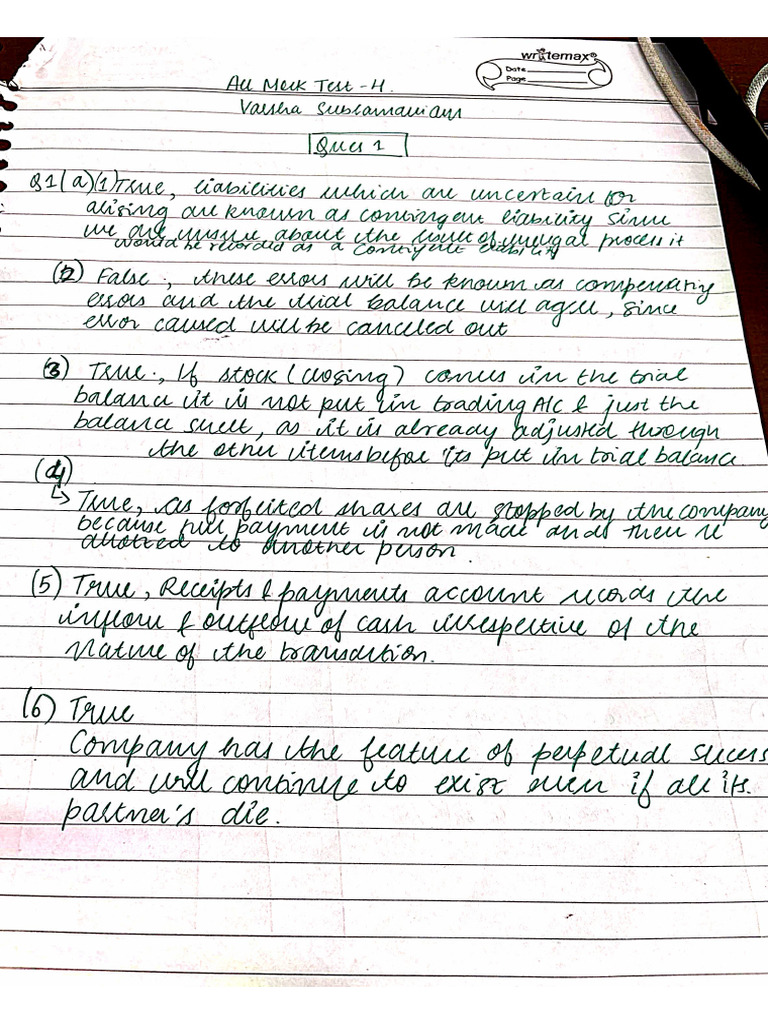 writemax®
Date
Page
All Mock Test - 4.
Varsha Subramanians
Ques 1
Q1(a)(1) True, liabilities which are uncertain for
arising are known as contingent liability since
we are unsure about the result of process it
would be recorded as a contingent liability
(2) False, these errors will be known as compensating
errors and the trial balance will agree, since
error caused will be canceled out
(3) True., If stock (closing) comes in the trial
balance it is not put in trading A/C & just the
balance sheet, as it is already adjusted through
the other items before its put in trial balance
(4)
True, as forfeited shares are stopped by the company
because full payment is not made and then re
allotted to another person.
(5) True, Receipts & payments account records the
inflow & outflow of cash irrespective of the
nature of the transaction.
(6) True
Company has the feature of perpetual sucess
and will continue to exist even if all its.
partner's die.